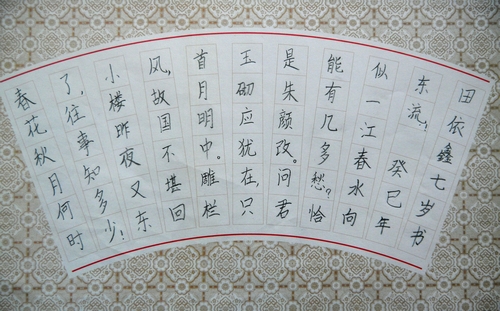 春花秋月何时
了，往事知多少！
小楼昨夜又东
风，故国不堪回
首月明中。雕栏
玉砌应犹在，只
是朱颜改。问君
能有几多愁？恰
似一江春水向
东流！ 癸巳年
田依鑫七岁书